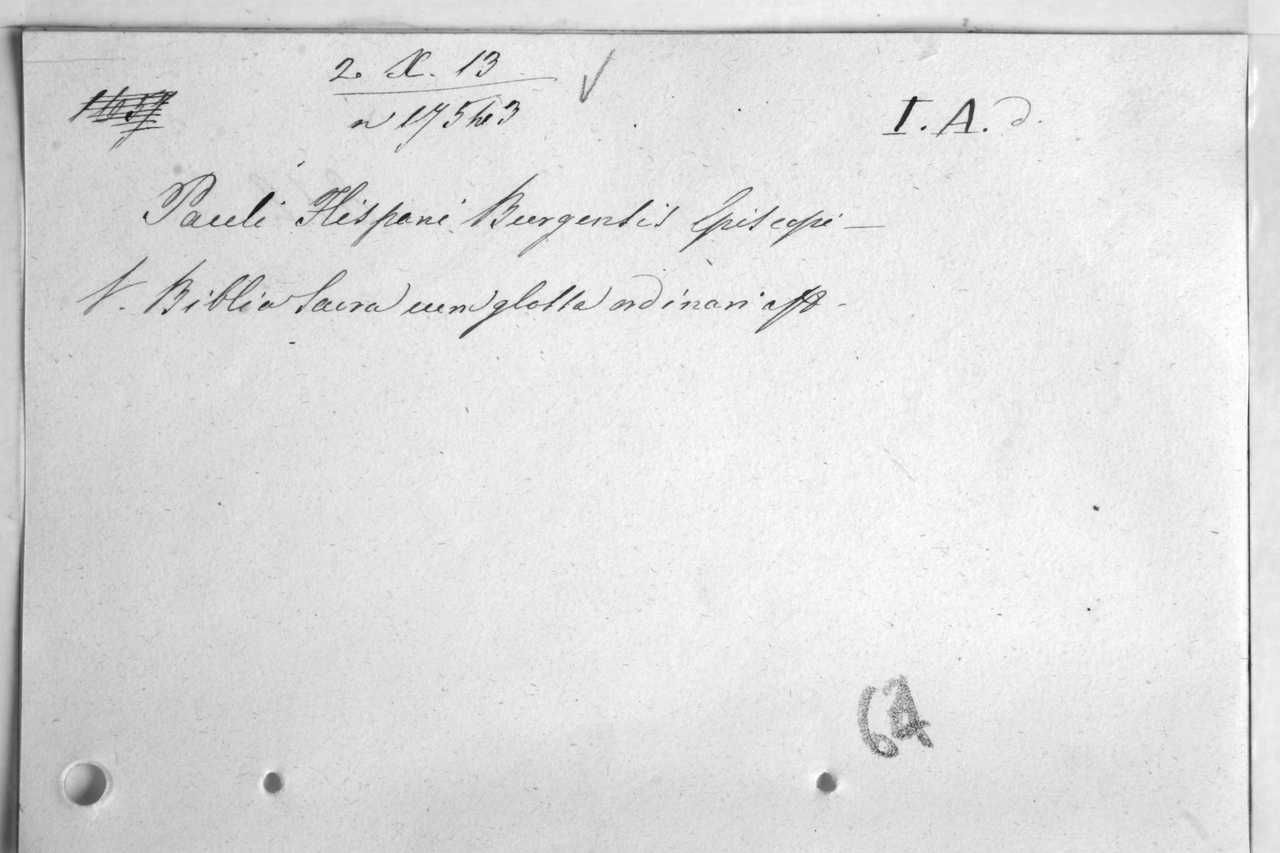 2. X. 13
I. A. d.
Pauli Hispani Burgensis Episcopi —
V. Biblia Sacra cum glossa ordinaria
64